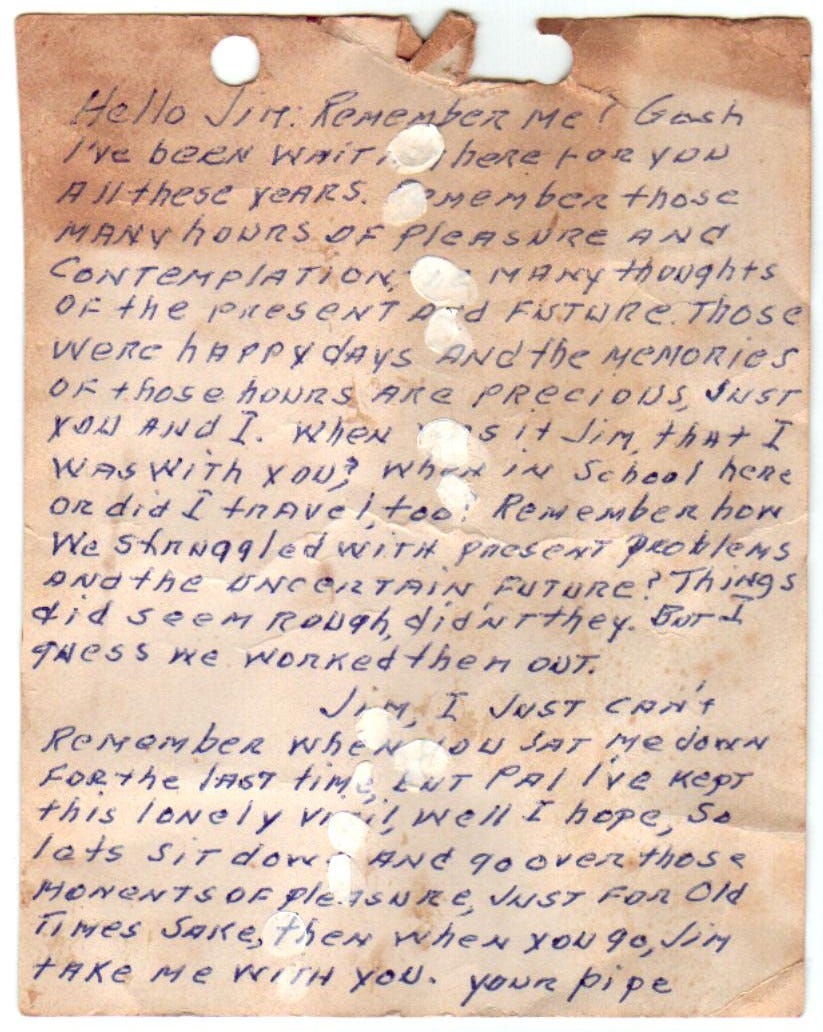 Hello Jim: Remember me? Gosh
I've been wait here for you
all these years. Remember those
many hours of pleasure and
contemplation, many thoughts
of the present and future. Those
were happy days and the memories
of those hours are precious, just
you and I. When was it Jim, that I
was with you? When in school here
or did I travel, too? Remember how
we struggled with present problems
and the uncertain, future? Things
did seem rough, didn't they. But I
guess we worked them out.
Jim, I just can't
remember when you sat me down
for the last time, but Pal I've kept
this lonely vigil, well I hope, so
lets sit down and go over those
moments of pleasure, just for old
times sake, then when you go, Jim
take me with you. your pipe